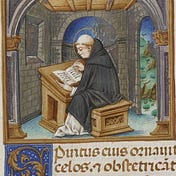 Spiritus eius ornauit
celos, ⁊ obstetricāt